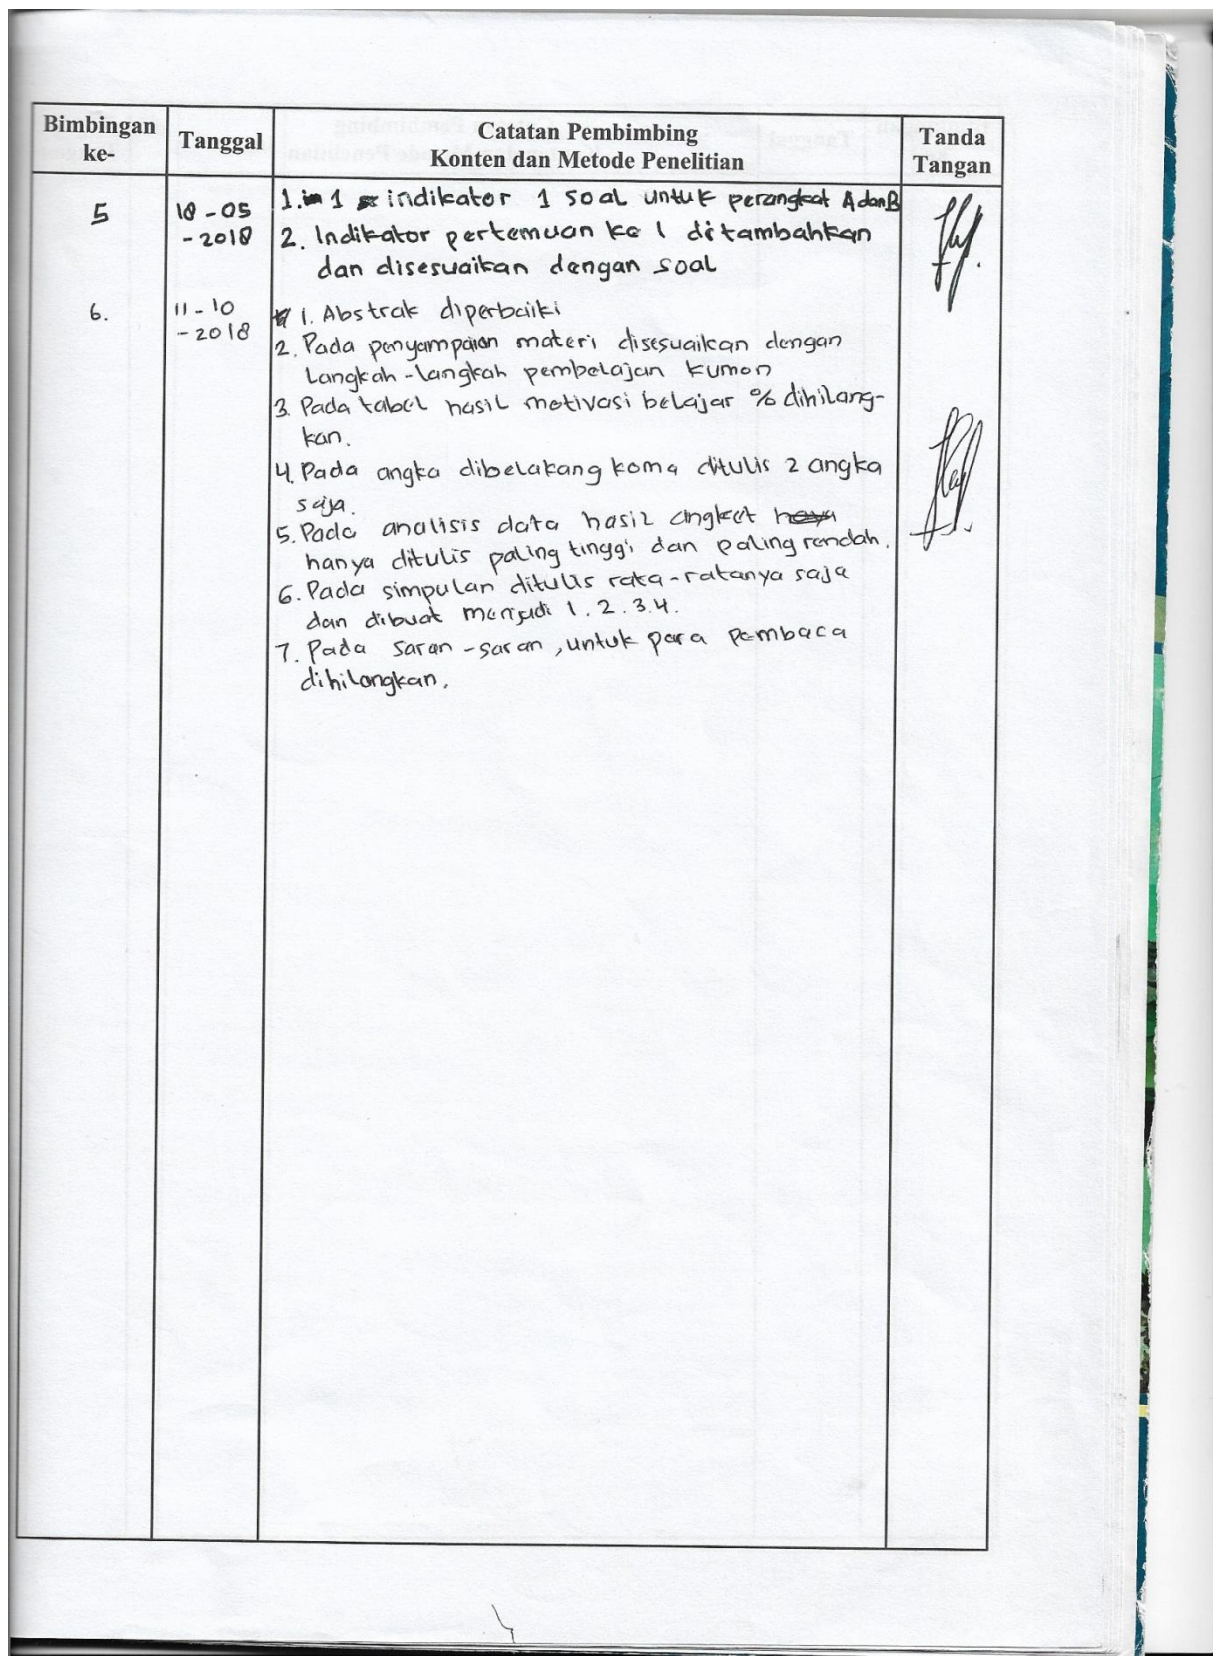 Bimbingan ke-
Tanggal
Catatan Pembimbing
Konten dan Metode Penelitian
Tanda Tangan
5
18-05
-2018
1. 1 indikator 1 soal untuk perangkat A dan B
2. Indikator pertemuan ke 1 ditambahkan
dan disesuaikan dengan soal
6.
11-10
-2018
1. Abstrak diperbaiki
2. Pada penyampaian materi disesuaikan dengan
Langkah-langkah pembelajan kumon
3. Pada tabel hasil motivasi belajar % dihilang-
kan.
4. Pada angka dibelakang koma ditulis 2 angka
saja.
5. Pada analisis data hasil angket
hanya ditulis paling tinggi dan paling rendah.
6. Pada simpulan ditulis rata-ratanya saja
dan dibuat menjadi 1.2.3.4.
7. Pada saran-saran, untuk para pembaca
dihilangkan.